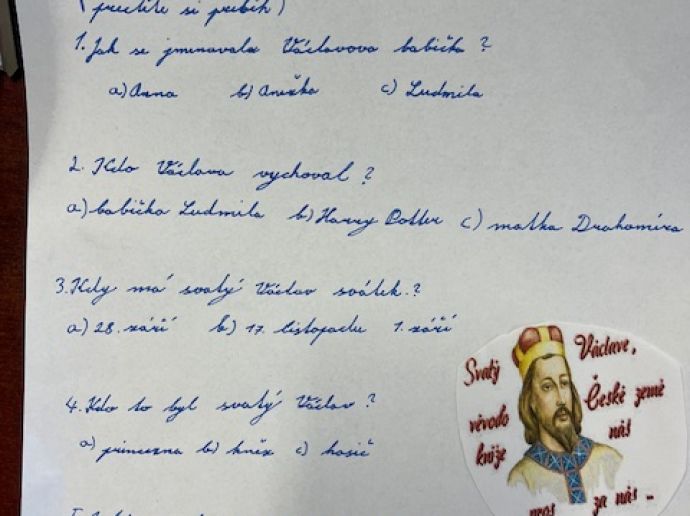 (přečtěte si příběh)
1. Jak se jmenovala Václavova babička?
a) Anna b) Anežka c) Ludmila
2. Kdo Václava vychoval?
a) babička Ludmila b) Harry Potter c) matka Drahomíra
3. Kdy má svatý Václav svátek.?
a) 28. září b) 17. listopadu 1. září
4. Kdo to byl svatý Václav?
a) princezna b) kněz c) hasič
Svatý Václave,
vévodo České země
kníže nás
pros za nás ..